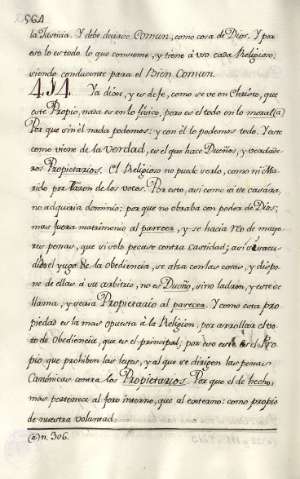 564
la Justicia. Y debe decirse Comun, como cosa de Dios. Y por
eso lo es todo lo que consume, y tiene à uso cada Religioso;
siendo conducente para el Bien Comun.
494 Ya dixe, y es de fe, como se ve en Christo, que
este Propio, nada es en lo fisico, pero es el todo en lo moral (a)
Por que sin èl nada podemos: y con èl lo podemos todo. Y este
como viene de la verdad, es el que hace Dueños, y verdade-
ros Propietarios. El Religioso no puede serlo, como ni Ma-
rido por razon de los votos. Por esto, asi como si se casára,
no adquiria dominio: por que no obraba con poder de Dios;
mas fuera matrimonio al parecer, y se hacia reo de mayo-
res penas, que si solo pecase contra castidad; asi
el yugo de la obediencia, se alza con las cosas, y dispo-
ne de ellas à su arbitrio, no es Dueño, sino ladron, y este se
llama, y es Propietario al parecer. Y como esta pro-
piedad es la mas opuesta à la Religion; por arrollar el vo-
to de Obediencia, que es el principal; por eso este es el Pro-
pio que prohiben las leyes, y al que se dirigen las penas
Canónicas contra los Propietarios. Por que el de hecho,
mas pertenece al foro interno, que al externo: como propio
de nuestra voluntad.
(a) n. 306.